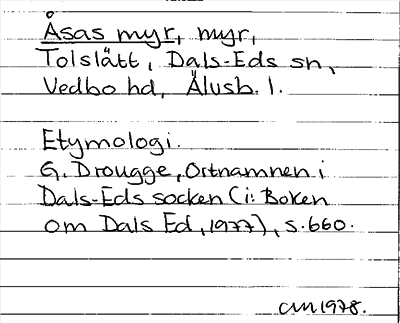 Åsas myr, myr,
Tolslätt, Dals-Eds sn,
Vedbo hd, Älvsb. l.
Etymologi.
G. Drougge, Ortnamnen i
Dals-Eds socken (i: Boken
om Dals Ed, 1977), s. 660.
CM 1978.